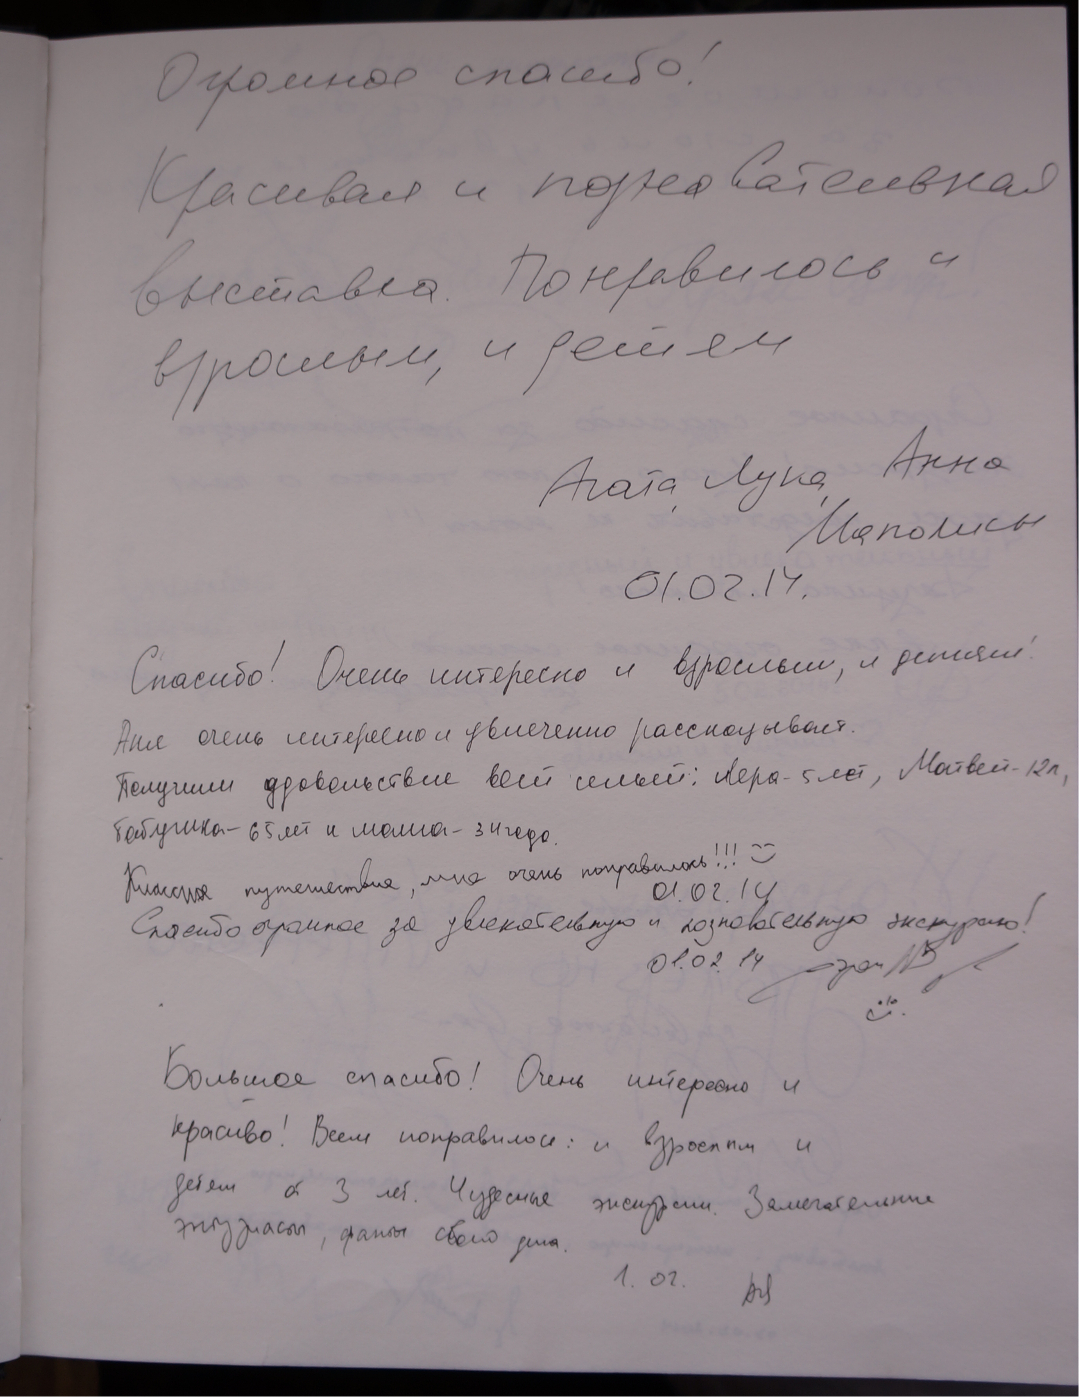 Огромное спасибо!
Красивая и познавательная
выставка. Понравилось и
взрослым, и детям
Агата, Лука, Анна
01.02.14.
Спасибо! Очень интересно и взрослым, и детям!
Аня очень интересно и увлеченно рассказывает.
Получили удовольствие всей семьей: Лера - 5 лет, Матвей - 12 л,
бабушка - 65 лет и мама - 34 года.
путешествие, мне очень понравилось!!!
01.02.14
Спасибо огромное за увлекательную и познавательную экскурсию!
01.02.14
Большое спасибо! Очень интересно и
красиво! Всем понравилось: и взрослым и
детям от 3 лет. Чудесные экскурсии. Замечательные
энтузиасты, фанаты своего дела.
1.02.